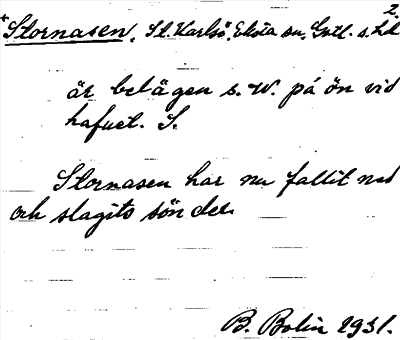 2.
*Stornasen, St. Karlsö, Eksta sn, Gotl. s. hd
är belägen s. W. på ön vid
hafvet. S.
Stornasen har nu fallit ned
och slagits sönder.
B. Bolin 1931.